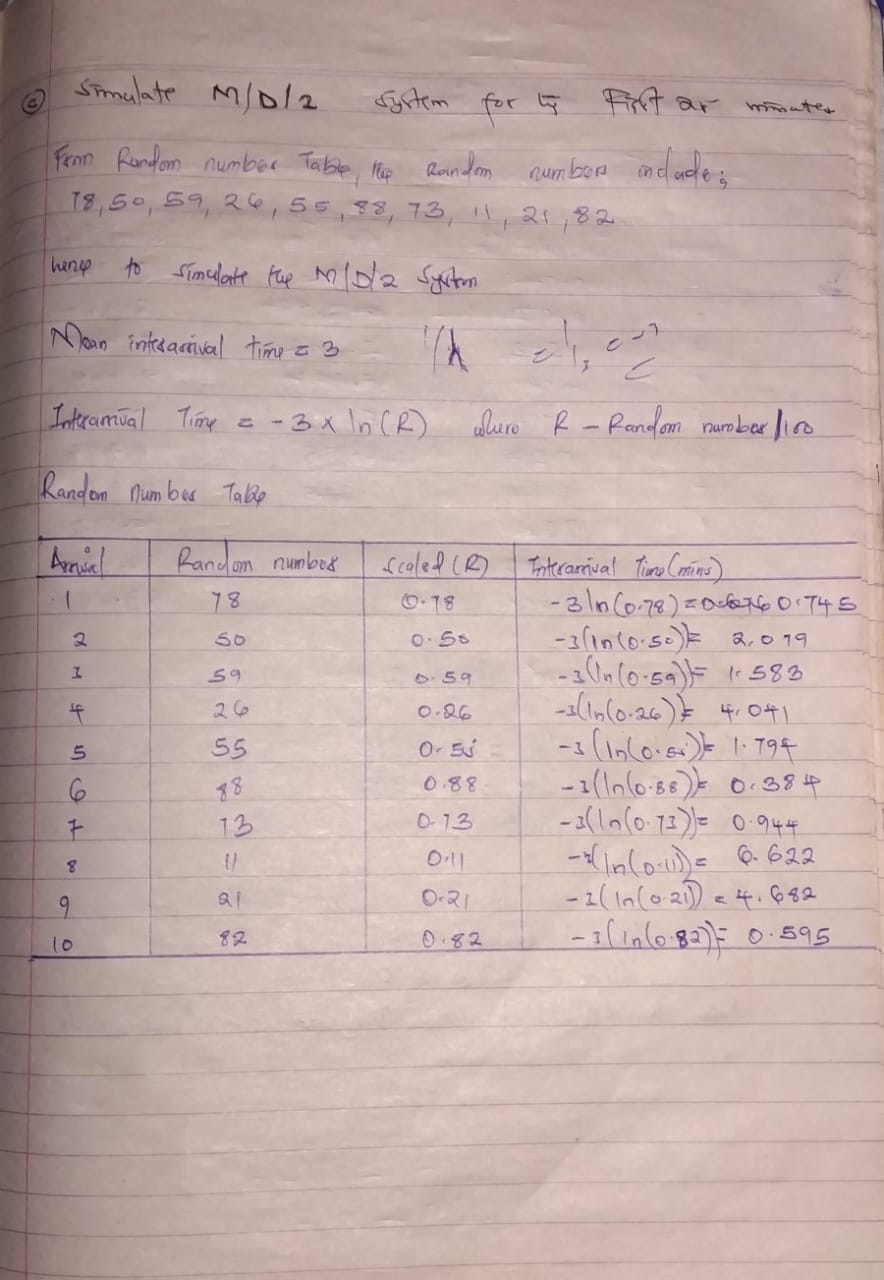 (c) Simulate M/D/2 system for the First 25 minutes
From Random number Table, the Random numbers include;
78, 50, 59, 26, 55, 88, 73, 11, 21, 82
hence to simulate the M/D/2 System
Mean interarrival time = 3 1/λ = 1/3
Interarrival Time = -3 x ln(R) where R - Random number/100
Random Number Table
Arrival Random number Scaled (R) Interarrival Time (mins)
1 78 0.78 -3ln(0.78) = 0.745
2 50 0.50 -3(ln(0.50)) = 2.079
3 59 0.59 -3(ln(0.59)) = 1.583
4 26 0.26 -3(ln(0.26)) = 4.041
5 55 0.55 -3(ln(0.55)) = 1.794
6 88 0.88 -3(ln(0.88)) = 0.384
7 73 0.73 -3(ln(0.73)) = 0.944
8 11 0.11 -3(ln(0.11)) = 6.622
9 21 0.21 -3(ln(0.21)) = 4.682
10 82 0.82 -3(ln(0.82)) = 0.595